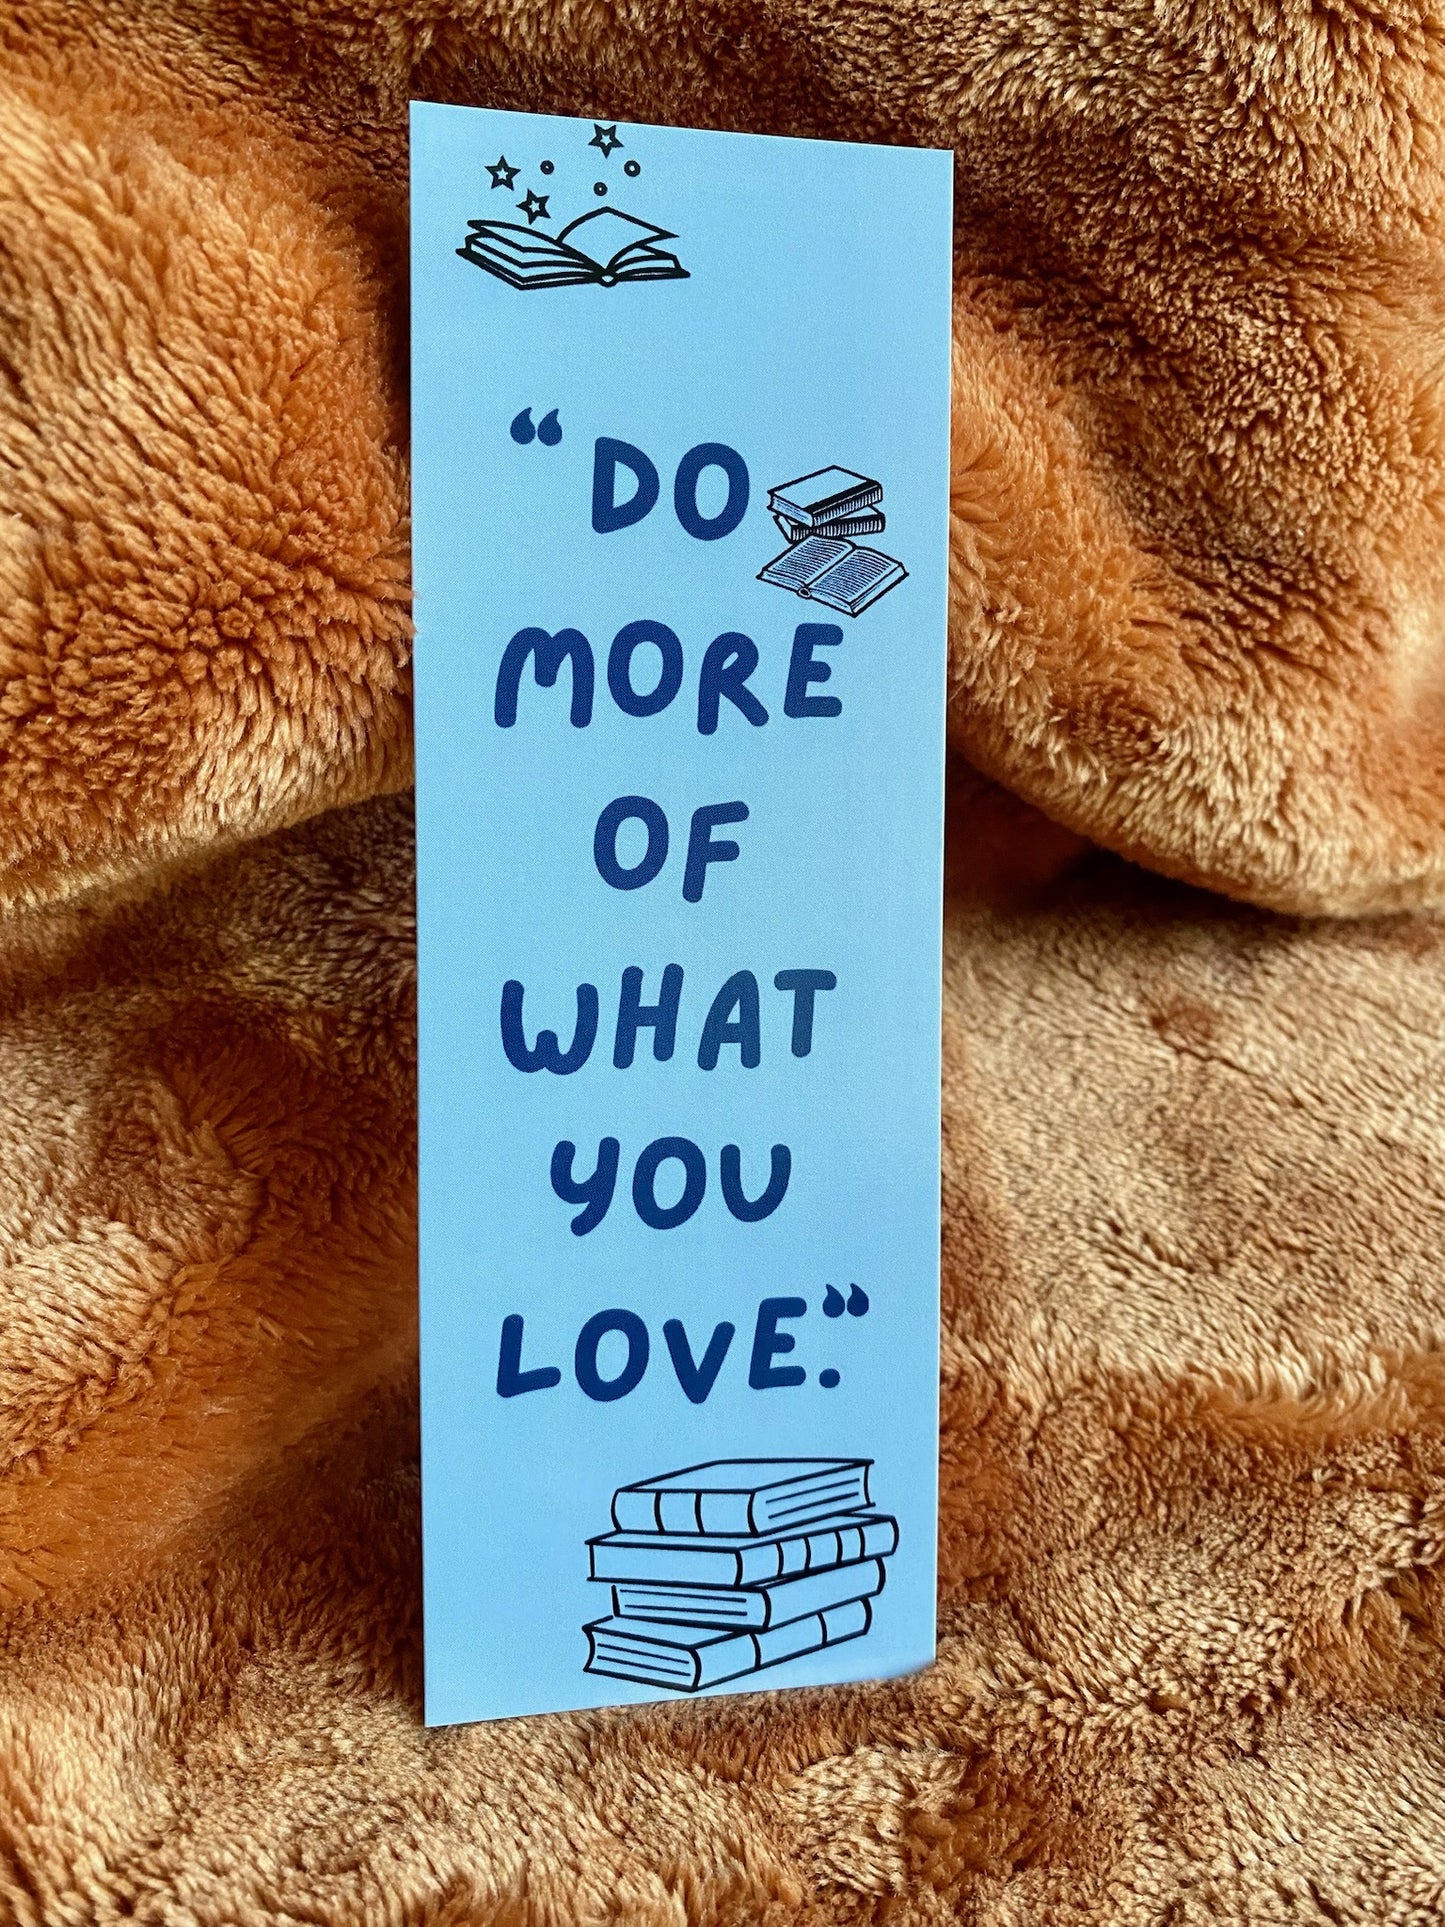 “DO
MORE
OF
WHAT
YOU
LOVE.”